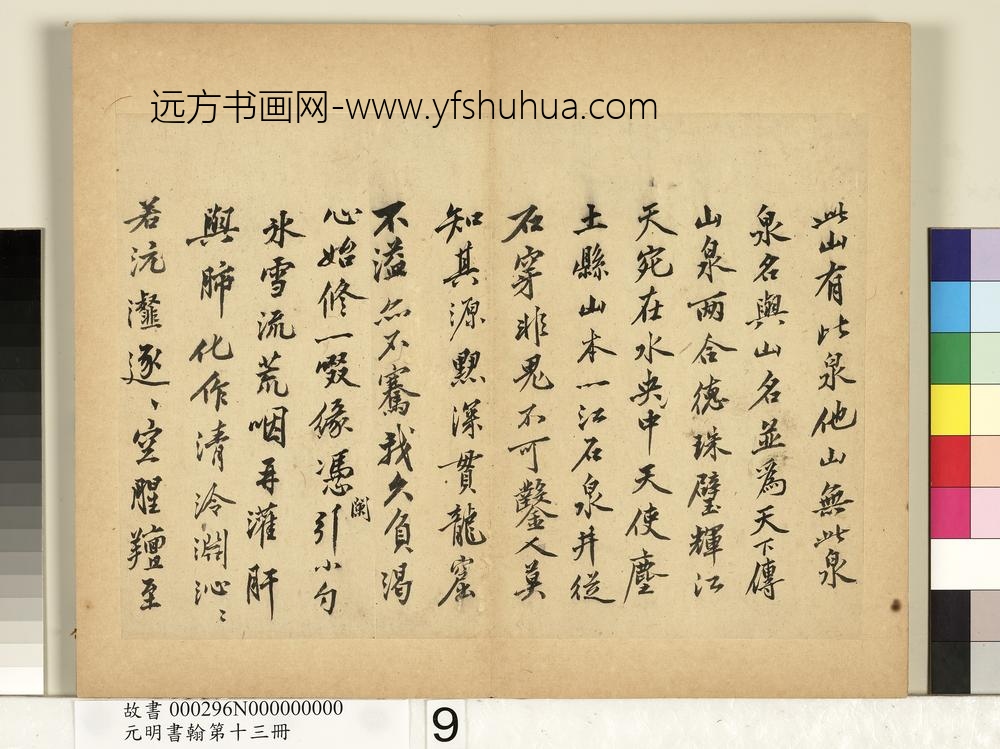 远方书画网-www.yfshuhua.com
此山有此泉他山無此泉
泉名與山名並為天下傳
山泉兩合德珠璧輝江
天宛在水央中天使塵
土縣山本一江石泉井從
石穿非鬼不可鑿人莫
知其源黙深貫龍窟
不溢亦不騫我久負渴
心始修一啜緣憑闌引小勺
氷雪流荒咽再灌肝
與肺化作清泠淵沁〻
若沆瀣逐〻空腥羶至
故書 000296N000000000
元明書翰第十三冊
9